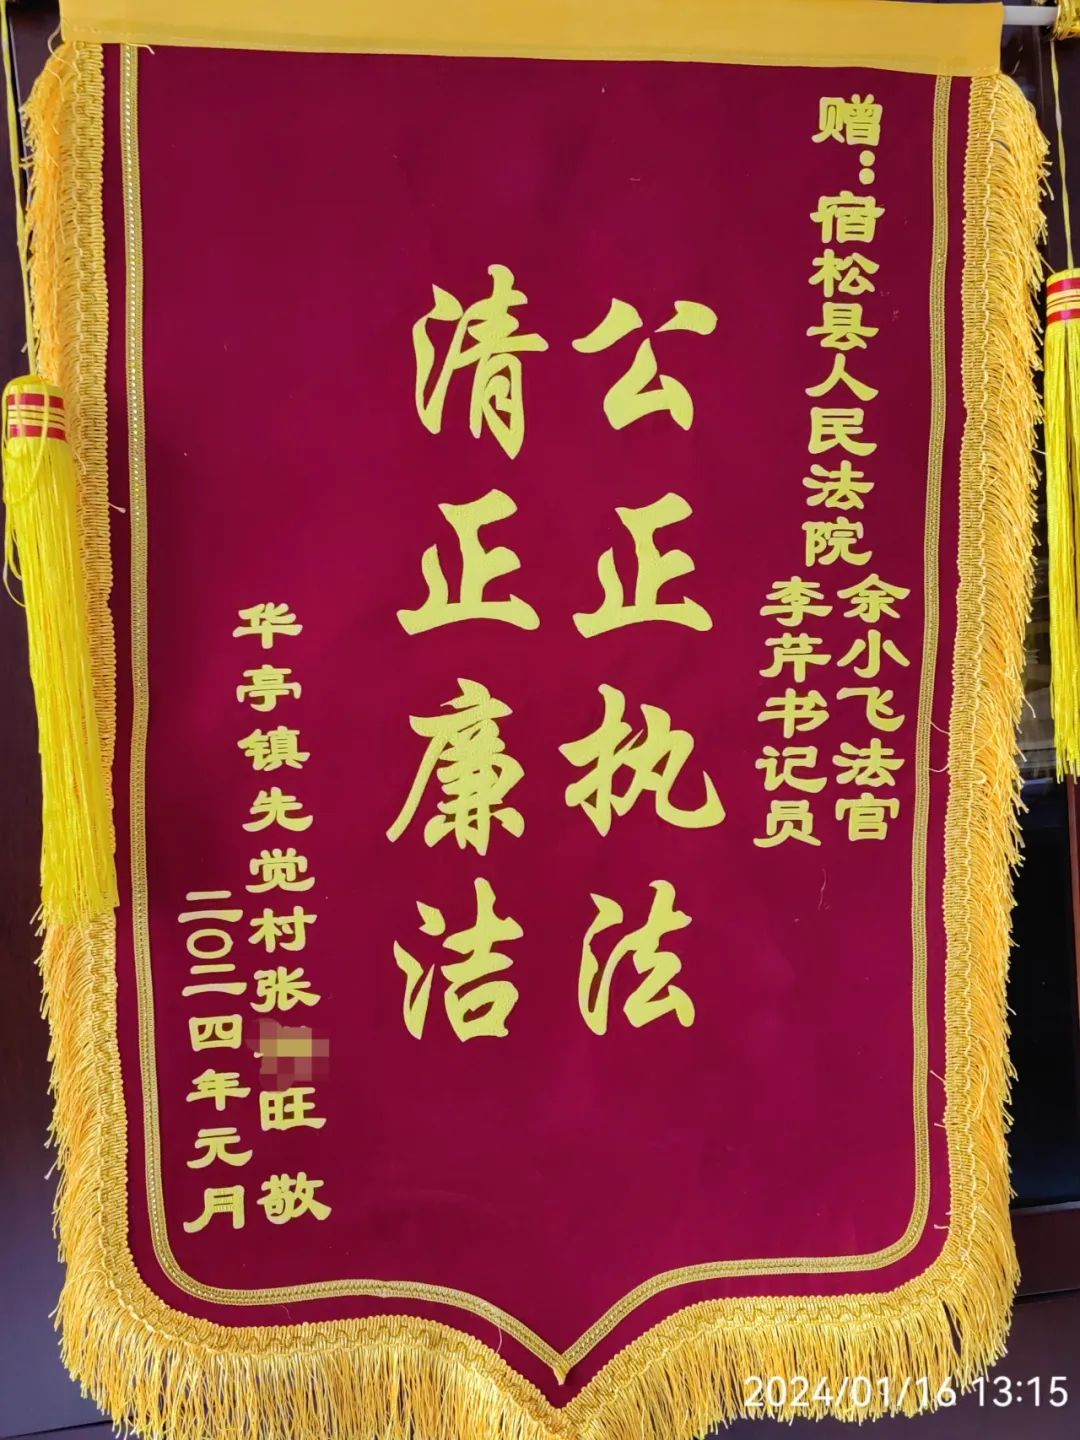 赠：宿松县人民法院
余小飞法官
李芹书记员
公正执法
清正廉洁
华亭镇先觉村张旺敬
二〇二四年元月
2024/01/16 13:15